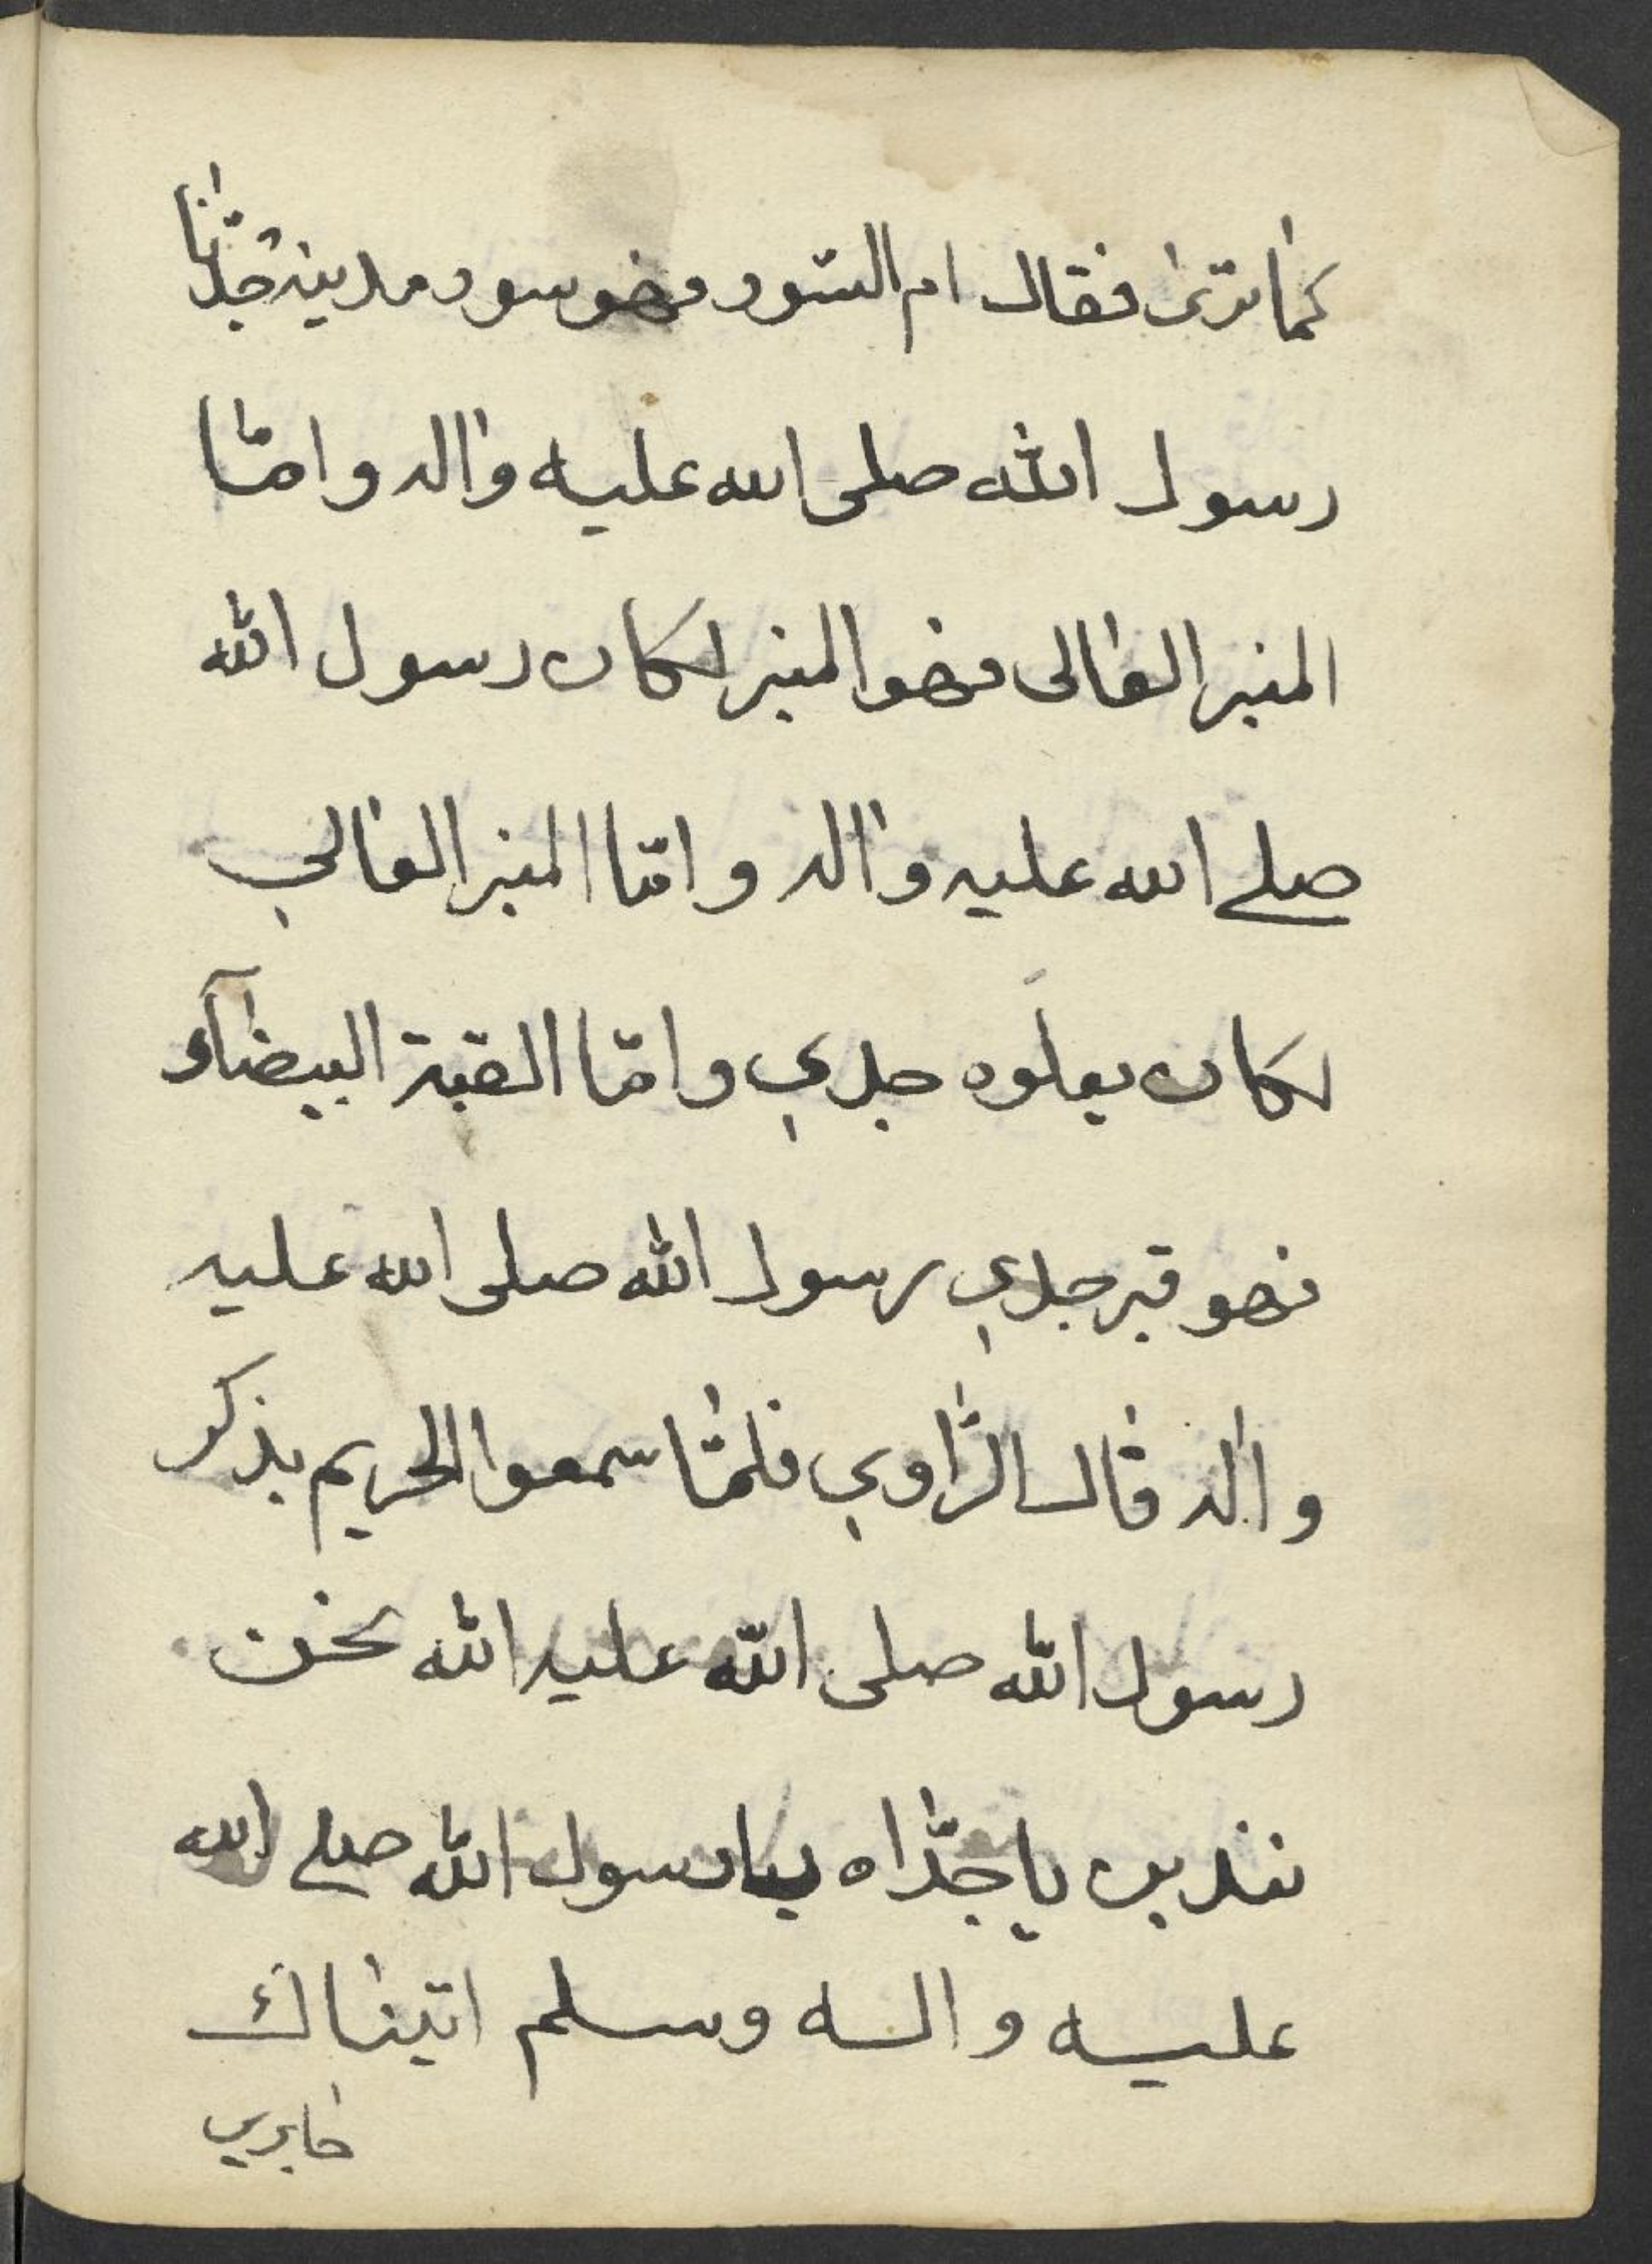 كما ترى فقال ام السور فهو سور مدينة جدنا
رسول الله صلى الله عليه واله وامّا
المنبر العالى فهو المنبر لكان رسول الله
صلے الله عليه واله وامّا المنبر العالي
لكان يعلوه جدي وامّا القبة البيضآء
فهو قبر جدي رسول الله صلى الله عليه
واله قال الرّاوي فلمّا سمعوا الحريم بذكر
رسول الله صلى الله عليه الله نحن
نفدين يا جدّاه يا رسول الله صلے الله
عليه واله وسلم اتيناك